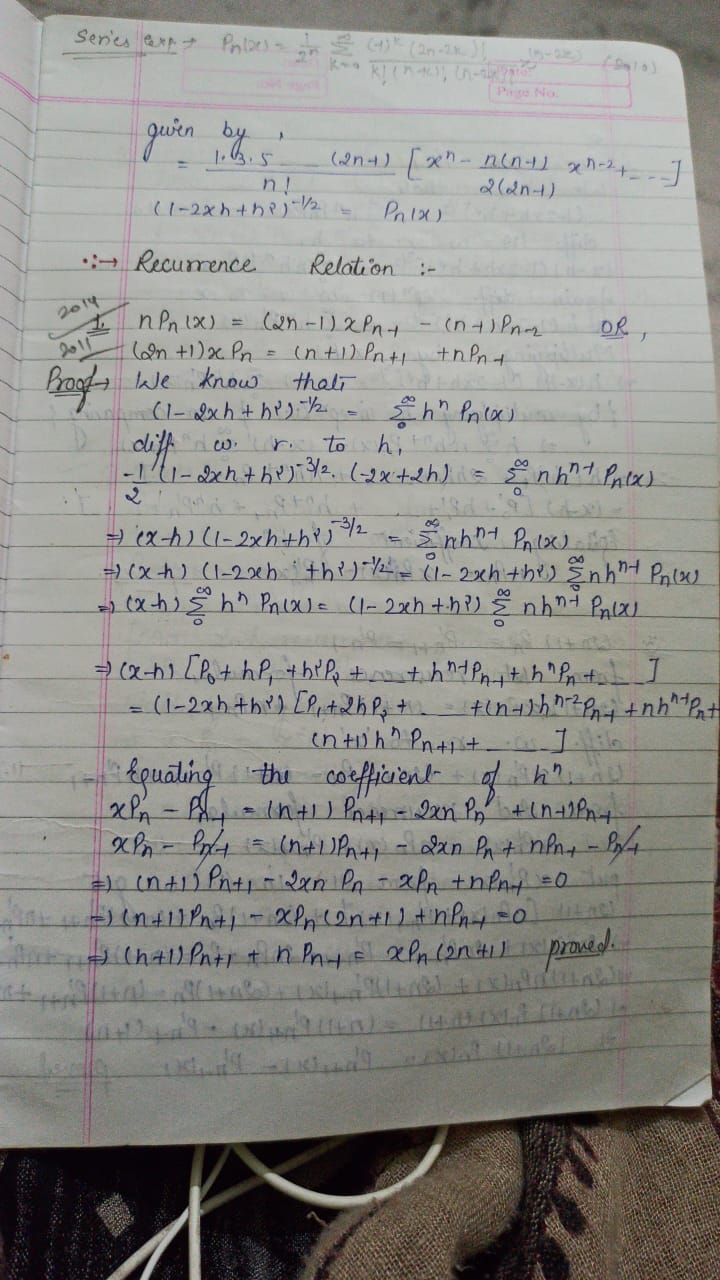 Series exp → Pn(x) = 1/2ⁿ ∞Σk=0 (-1)ᵏ (2n-2k)! / k! (n-k)! (n-2k)! x⁽ⁿ⁻²ᵏ⁾ (2010)
Page No.
given by,
= 1.3.5 ___ (2n-1) / n! [xⁿ - n(n-1) / 2(2n-1) xⁿ⁻² + ---]
(1-2xh+h²)⁻¹/² = Pn(x)
∴→ Recurrence Relation :-
2014
1. nPn(x) = (2n-1)xPn-1 - (n-1)Pn-2 OR,
2011 (2n+1)x Pn = (n+1) Pn+1 + nPn-1
Proof→ We know that
(1-2xh+h²)⁻¹/² = ∞Σ0 hⁿ Pn(x)
diff w. r. to h,
-1/2 (1-2xh+h²)⁻³/². (-2x+2h) = ∞Σ0 nhⁿ⁻¹ Pn(x)
⇒ (x-h) (1-2xh+h²)⁻³/² = ∞Σ0 nhⁿ⁻¹ Pn(x)
⇒ (x-h) (1-2xh+h²)⁻¹/² = (1-2xh+h²) ∞Σ0 nhⁿ⁻¹ Pn(x)
⇒ (x-h) ∞Σ0 hⁿ Pn(x) = (1-2xh+h²) ∞Σ0 nhⁿ⁻¹ Pn(x)
⇒ (x-h) [P0 + hP1 + h²P2 + ___ + hⁿ⁻¹Pn-1 + hⁿPn + ___]
= (1-2xh+h²) [P1 + 2hP2 + ___ + (n-1)hⁿ⁻²Pn-1 + nhⁿ⁻¹Pn +
(n+1)hⁿ Pn+1 + ___]
Equating the coefficient of hⁿ.
xPn - Pn-1 = (n+1) Pn+1 - 2xn Pn + (n-1)Pn-1
xPn - Pn-1 = (n+1)Pn+1 - 2xn Pn + nPn-1 - Pn-1
⇒ (n+1)Pn+1 - 2xn Pn - xPn + nPn-1 = 0
⇒ (n+1)Pn+1 - xPn (2n+1) + nPn-1 = 0
⇒ (n+1)Pn+1 + n Pn-1 = xPn (2n+1) proved.